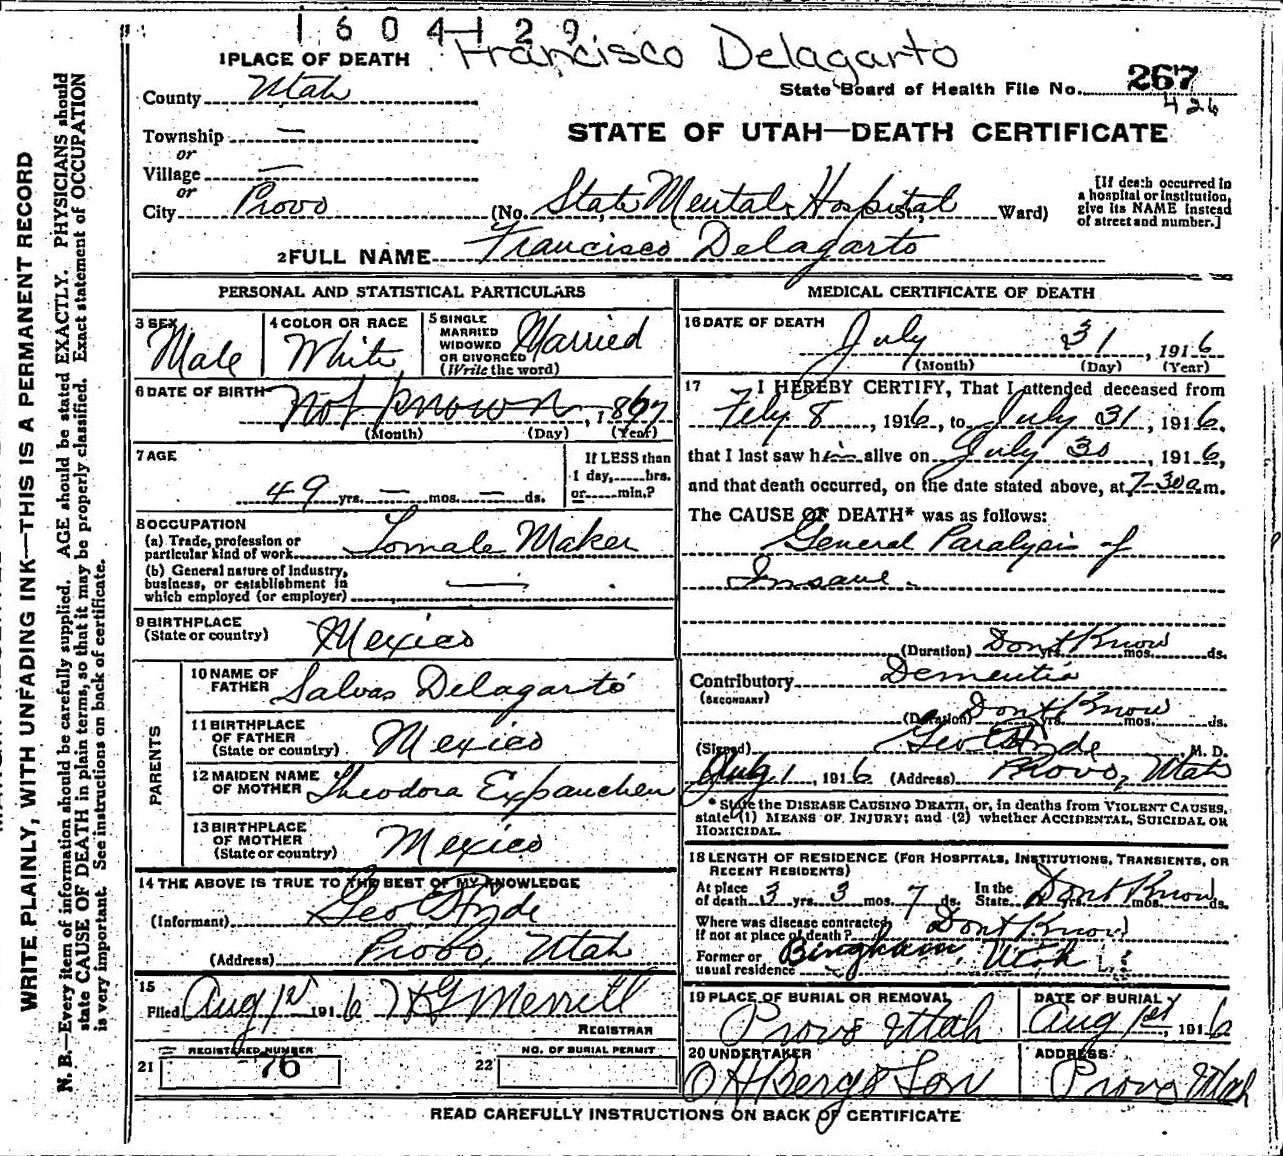 1604129
Francisco Delagarto
1 PLACE OF DEATH
State Board of Health File No. 267
426
County Utah
STATE OF UTAH—DEATH CERTIFICATE
Township —
or
Village —
or
City Provo (No. State Mental Hospital St.; Ward)
[If death occurred in
a hospital or institution,
give its NAME instead
of street and number.]
2 FULL NAME Francisco Delagarto
PERSONAL AND STATISTICAL PARTICULARS
3 SEX Male
4 COLOR OR RACE White
5 SINGLE
MARRIED
WIDOWED
OR DIVORCED
(Write the word) Married
6 DATE OF BIRTH Not known, 1867
(Month) (Day) (Year)
7 AGE
49 yrs. — mos. — ds.
If LESS than
1 day, hrs.
or min.?
8 OCCUPATION
(a) Trade, profession or
particular kind of work Tomale Maker
(b) General nature of Industry,
business, or establishment in
which employed (or employer) —
9 BIRTHPLACE
(State or country) Mexico
PARENTS
10 NAME OF
FATHER Salvas Delagarto
11 BIRTHPLACE
OF FATHER
(State or country) Mexico
12 MAIDEN NAME
OF MOTHER Theodora
13 BIRTHPLACE
OF MOTHER
(State or country) Mexico
14 THE ABOVE IS TRUE TO THE BEST OF MY KNOWLEDGE
(Informant) Geo E Hyde
(Address) Provo, Utah
15
Filed Aug 1st 1916 H G Merrill
REGISTRAR
21 REGISTERED NUMBER
76
22 NO. OF BURIAL PERMIT
MEDICAL CERTIFICATE OF DEATH
16 DATE OF DEATH
July 31, 1916
(Month) (Day) (Year)
17 I HEREBY CERTIFY, That I attended deceased from
Feby. 8, 1916, to July 31, 1916.
that I last saw him alive on July 30, 1916,
and that death occurred, on the date stated above, at 7-30 a.m.
The CAUSE OF DEATH* was as follows:
General Paralysis of
Insane.
(Duration) Dont Know yrs. mos. ds.
Contributory Dementia
(SECONDARY)
(Duration) Dont Know yrs. mos. ds.
(Signed) Geo E Hyde M. D.
Aug. 1, 1916 (Address) Provo, Utah
* State the DISEASE CAUSING DEATH, or, in deaths from VIOLENT CAUSES,
state (1) MEANS OF INJURY; and (2) whether ACCIDENTAL, SUICIDAL OR
HOMICIDAL.
18 LENGTH OF RESIDENCE (FOR HOSPITALS, INSTITUTIONS, TRANSIENTS, OR
RECENT RESIDENTS)
At place
of death 3 yrs. 3 mos. 7 ds. In the
State Dont Know yrs. mos. ds.
Where was disease contracted
If not at place of death? Dont Know
Former or
usual residence Bingham, Utah
19 PLACE OF BURIAL OR REMOVAL
Provo Utah
DATE OF BURIAL
Aug 1st, 1916
20 UNDERTAKER
O H Berg & Son
ADDRESS
Provo Utah
READ CAREFULLY INSTRUCTIONS ON BACK OF CERTIFICATE
WRITE PLAINLY, WITH UNFADING INK—THIS IS A PERMANENT RECORD
N. B.—Every item of information should be carefully supplied. AGE should be stated EXACTLY. PHYSICIANS should
state CAUSE OF DEATH in plain terms, so that it may be properly classified. Exact statement of OCCUPATION
is very important. See instructions on back of certificate.